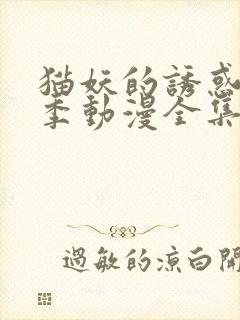 猫妖的誘惑
季動漫全集
過敏的涼白開